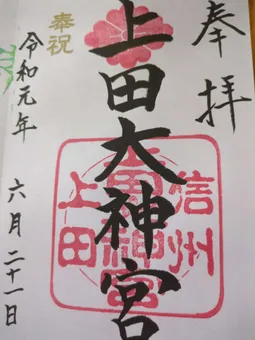 奉拝
上田大神宮
信州
上田
奉祝
令和元年
六月二十一日